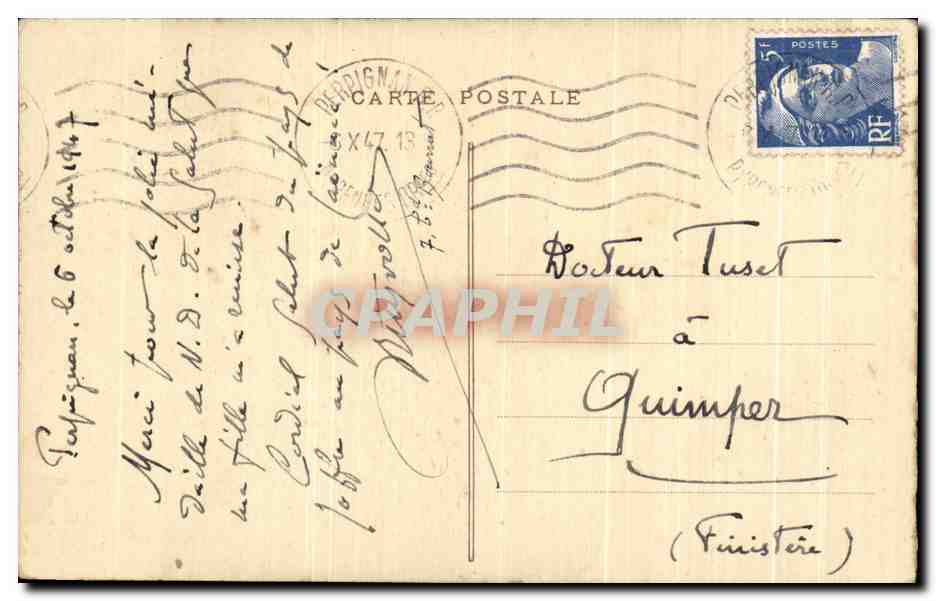 CARTE POSTALE
Perpignan, le 6 octobre 1947
Merci pour la jolie mé-
daille de N. D. de la Salut que
ma fille m'a remise.
Cordial salut du pays de
Joffre au pays de
7,
PERPIGNAN
X 47 13
POSTES
5F
RF
Docteur Tuset
à
Quimper
(Finistère)
CPAPHIL